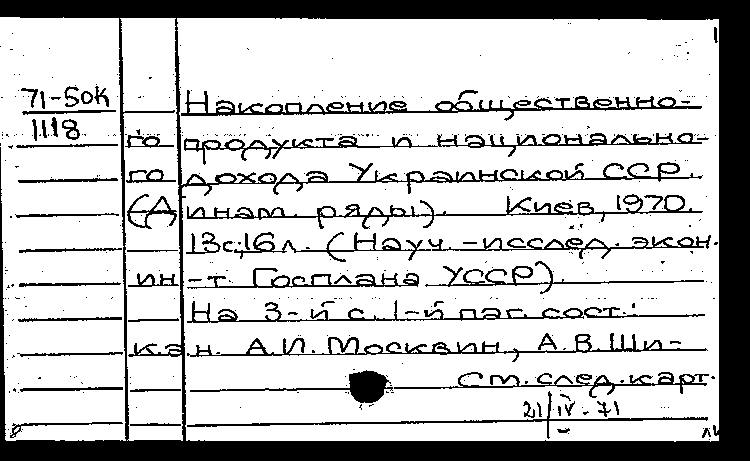 71-50К
1118
Накопление общественно-
го продукта и национально-
го дохода Украинской ССР.
(Динам. ряды). Киев, 1970.
13с;16л. (Науч.-исслед. экон.
ин-т Госплана УССР).
На 3-й с. 1-й паг. сост.:
к.э.н. А.И. Москвин, А.В. Ши-
См. след. карт.
21/IV-71